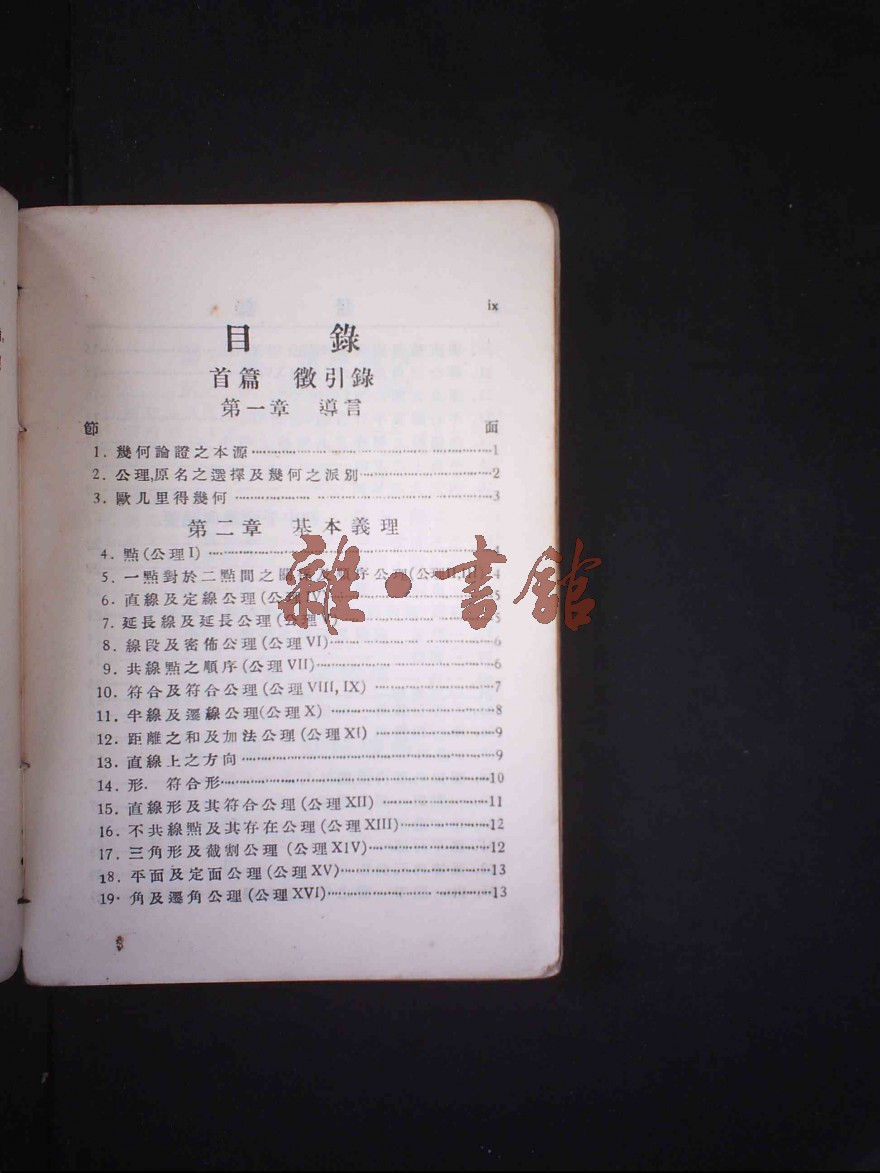 ix
目 錄
首篇 徵引錄
第一章 導言
節 面
1. 幾何論證之本源……1
2. 公理,原名之選擇及幾何之派別……2
3. 歐几里得幾何……3
第二章 基本義理
4. 點(公理I)……4
5. 一點對於二點間之關係及順序公理(公理II,III)…4
6. 直線及定線公理(公理IV)……5
7. 延長線及延長公理(公理V)……5
8. 線段及密佈公理(公理VI)……6
9. 共線點之順序(公理VII)……6
10. 符合及符合公理(公理VIII, IX)……7
11. 半線及遷線公理(公理X)……8
12. 距離之和及加法公理(公理XI)……9
13. 直線上之方向……9
14. 形. 符合形……10
15. 直線形及其符合公理(公理XII)……11
16. 不共線點及其存在公理(公理XIII)……12
17. 三角形及截割公理 (公理XIV)……12
18. 平面及定面公理(公理XV)……13
19. 角及遷角公理(公理XVI)……13
雜·書館